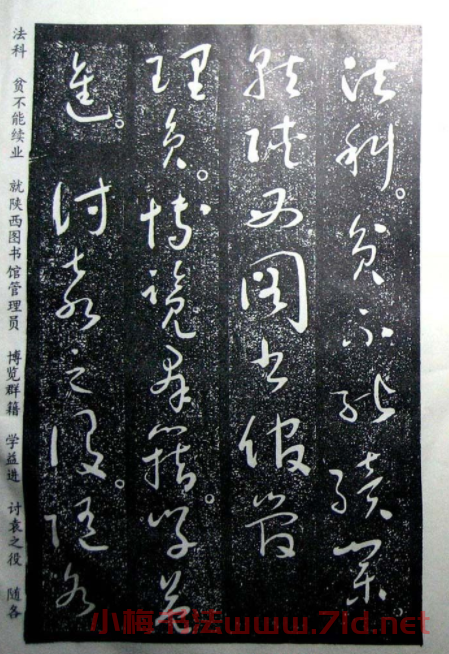 法科。贫不能续业。
就陕西图书馆管
理员。博览群籍。学益
进。讨袁之役。随各
法科 贫不能续业 就陕西图书馆管理员 博览群籍 学益进 讨袁之役 随各
小梅书法www.7ld.net